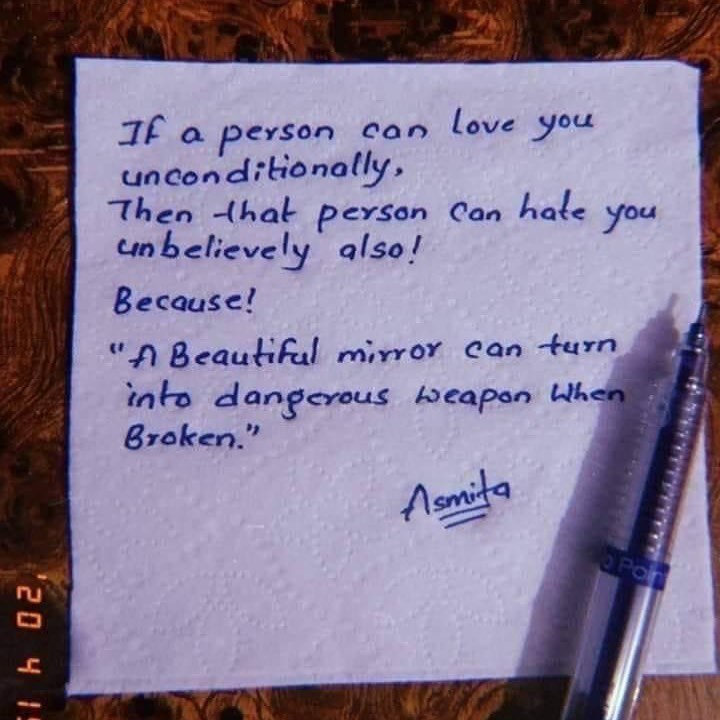 If a person can love you
unconditionally,
Then that person can hate you
unbelievely also!
Because!
"A Beautiful mirror can turn
into dangerous weapon When
Broken."
Asmita